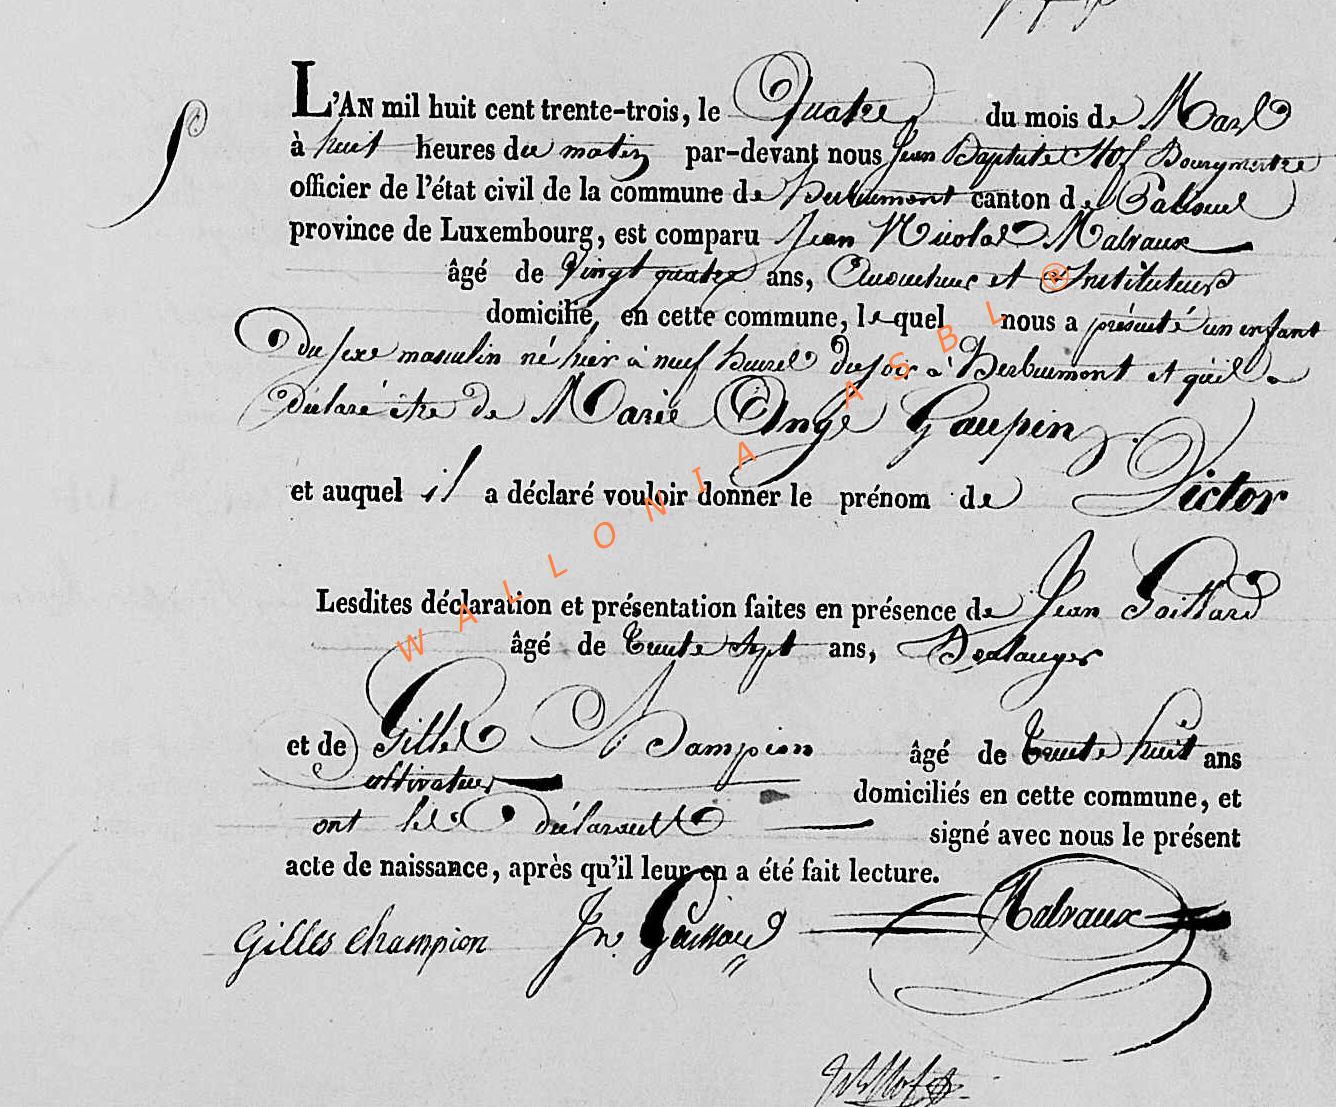 L'AN mil huit cent trente-trois, le Quatre du mois de Mars
à huit heures du matin par-devant nous Jean Baptiste Hof Bourgmestre
officier de l'état civil de la commune de Herbeumont canton de Paliseul
province de Luxembourg, est comparu Jean Nicolas Malvaux
âgé de Vingt quatre ans, Accoucheur et Instituteur
domicilié, en cette commune, lequel nous a présenté un enfant
du sexe masculin né hier à neuf heures du soir à Herbeumont et qu'il a
déclaré être de Marie Ange Gaupin
et auquel il a déclaré vouloir donner le prénom de Victor
Lesdites déclaration et présentation faites en présence de Jean Goillard
âgé de trente sept ans, Boulanger
et de Gilles Champion âgé de trente huit ans
cultivateur
domiciliés en cette commune, et
ont les déclarants signé avec nous le présent
acte de naissance, après qu'il leur en a été fait lecture.
Gilles Champion Jn. Malvaux
WALLONIA ASBL ®